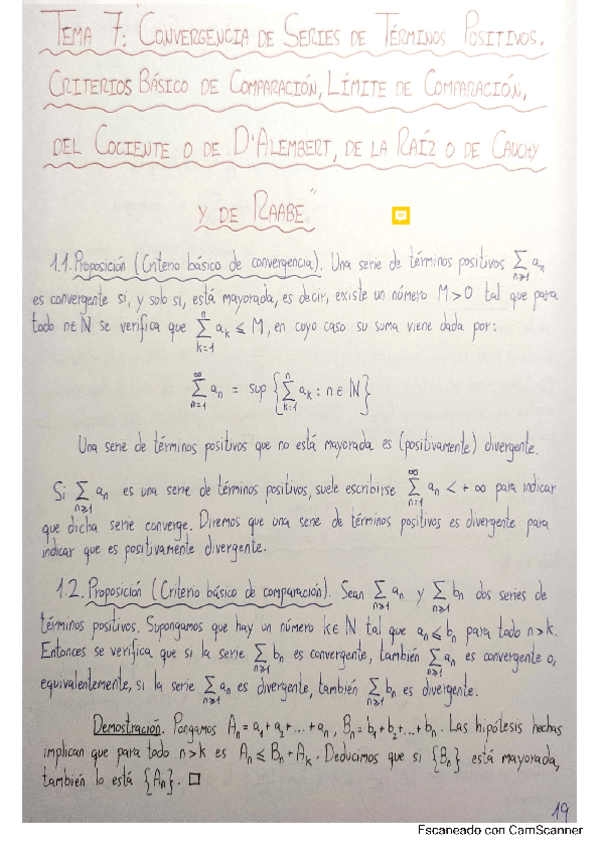 TEMA 7: "CONVERGENCIA DE SERIES DE TÉRMINOS POSITIVOS.
CRITERIOS BÁSICO DE COMPARACIÓN, LÍMITE DE COMPARACIÓN,
DEL COCIENTE O DE D'ALEMBERT, DE LA RAÍZ O DE CAUCHY
Y DE RAABE."
1.1. Proposición (Criterio básico de convergencia). Una serie de términos positivos ∑_{n≥1} aₙ
es convergente si, y solo si, está mayorada, es decir, existe un número M>0 tal que para
todo n∈ℕ se verifica que ∑_{k=1}^{n} aₖ ≤ M, en cuyo caso su suma viene dada por:
∑_{n=1}^{∞} aₙ = sup {∑_{k=1}^{n} aₖ : n∈ℕ}
Una serie de términos positivos que no está mayorada es (positivamente) divergente.
Si ∑_{n≥1} aₙ es una serie de términos positivos, suele escribirse ∑_{n=1}^{∞} aₙ < +∞ para indicar
que dicha serie converge. Diremos que una serie de términos positivos es divergente para
indicar que es positivamente divergente.
1.2. Proposición (Criterio básico de comparación). Sean ∑_{n≥1} aₙ y ∑_{n≥1} bₙ dos series de
términos positivos. Supongamos que hay un número k∈ℕ tal que aₙ ≤ bₙ para todo n>k.
Entonces se verifica que si la serie ∑_{n≥1} bₙ es convergente, también ∑_{n≥1} aₙ es convergente o,
equivalentemente, si la serie ∑_{n≥1} aₙ es divergente, también ∑_{n≥1} bₙ es divergente.
Demostración. Pongamos Aₙ = a₁+a₂+...+aₙ, Bₙ = b₁+b₂+...+bₙ. Las hipótesis hechas
implican que para todo n>k es Aₙ ≤ Bₙ+Aₖ. Deducimos que si {Bₙ} está mayorada,
también lo está {Aₙ}. □
19
Escaneado con CamScanner